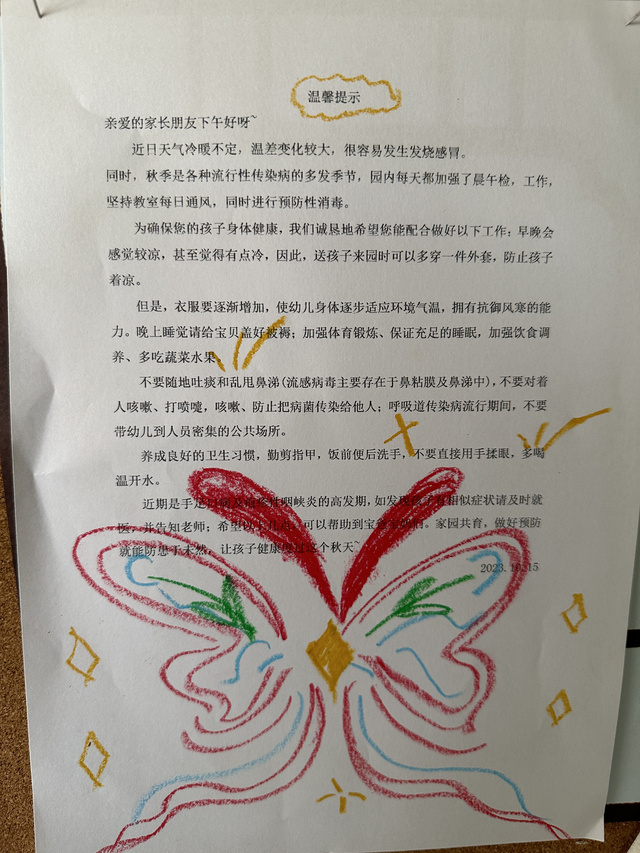 温馨提示
亲爱的家长朋友下午好呀~
近日天气冷暖不定，温差变化较大，很容易发生发烧感冒。
同时，秋季是各种流行性传染病的多发季节，园内每天都加强了晨午检，工作，
坚持教室每日通风，同时进行预防性消毒。
为确保您的孩子身体健康，我们诚恳地希望您能配合做好以下工作：早晚会
感觉较凉，甚至觉得有点冷，因此，送孩子来园时可以多穿一件外套，防止孩子
着凉。
但是，衣服要逐渐增加，使幼儿身体逐步适应环境气温，拥有抗御风寒的能
力。晚上睡觉请给宝贝盖好被褥；加强体育锻炼、保证充足的睡眠，加强饮食调
养、多吃蔬菜水果。
不要随地吐痰和乱甩鼻涕(流感病毒主要存在于鼻粘膜及鼻涕中)，不要对着
人咳嗽、打喷嚏，咳嗽、防止把病菌传染给他人；呼吸道传染病流行期间，不要
带幼儿到人员密集的公共场所。
养成良好的卫生习惯，勤剪指甲，饭前便后洗手，不要直接用手揉眼，多喝
温开水。
近期是手足口病及疱疹性咽峡炎的高发期，如发现孩子有相似症状请及时就
医，并告知老师；希望以上几点，可以帮助到宝爸宝妈们。家园共育，做好预防
就能防患于未然，让孩子健康度过这个秋天~
2023.10.15